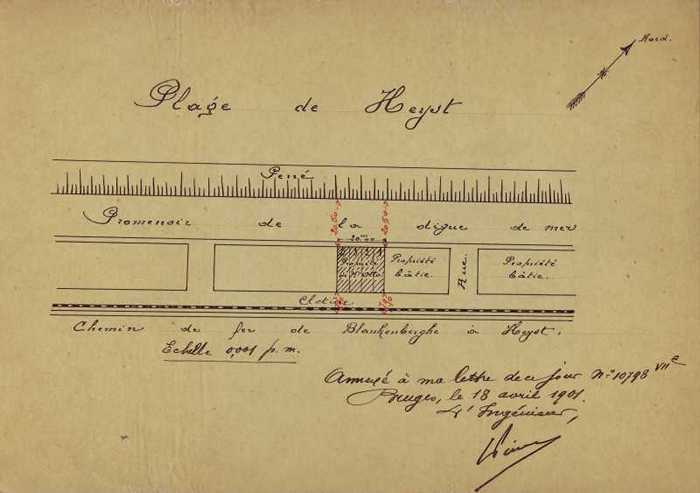 Nord.
Plage de Heyst
Perré
Promenoir de la digue de mer
20m00
Propriété
Propriété bâtie.
Rue.
Propriété bâtie.
Clôture
Chemin de fer de Blankenberghe à Heyst.
Echelle 0,001 p. m.
Annexé à ma lettre de ce jour No 10798 VIIe
Bruges, le 18 avril 1901.
L'Ingénieur,